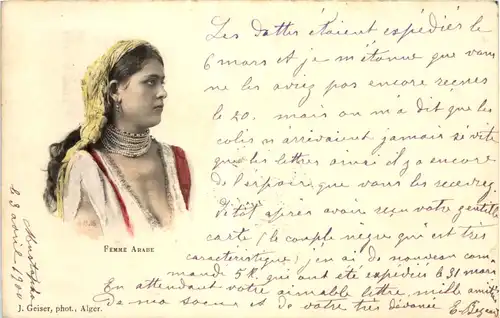 Les dattes étaient expédiés le
6 mars et je m'étonne que vous
ne les aviez pas encore reçues
le 20. mais on m'a dit que les
colis n'arrivaient jamais si vite
que les lettres ainsi il y a encore
de l'espoir que vous les recevrez
bientôt après avoir reçu votre gentille
carte (le couple negre qui est très
caractéristique) j'en ai de nouveau com-
mandé 5 K. qui ont été expédiés le 31 mars.
En attendant votre aimable lettre, mille amitiés
de ma soeur et de votre très dévouée E.
FEMME ARABE
J. Geiser, phot., Alger.
Mustapha
le 3 avril 1900